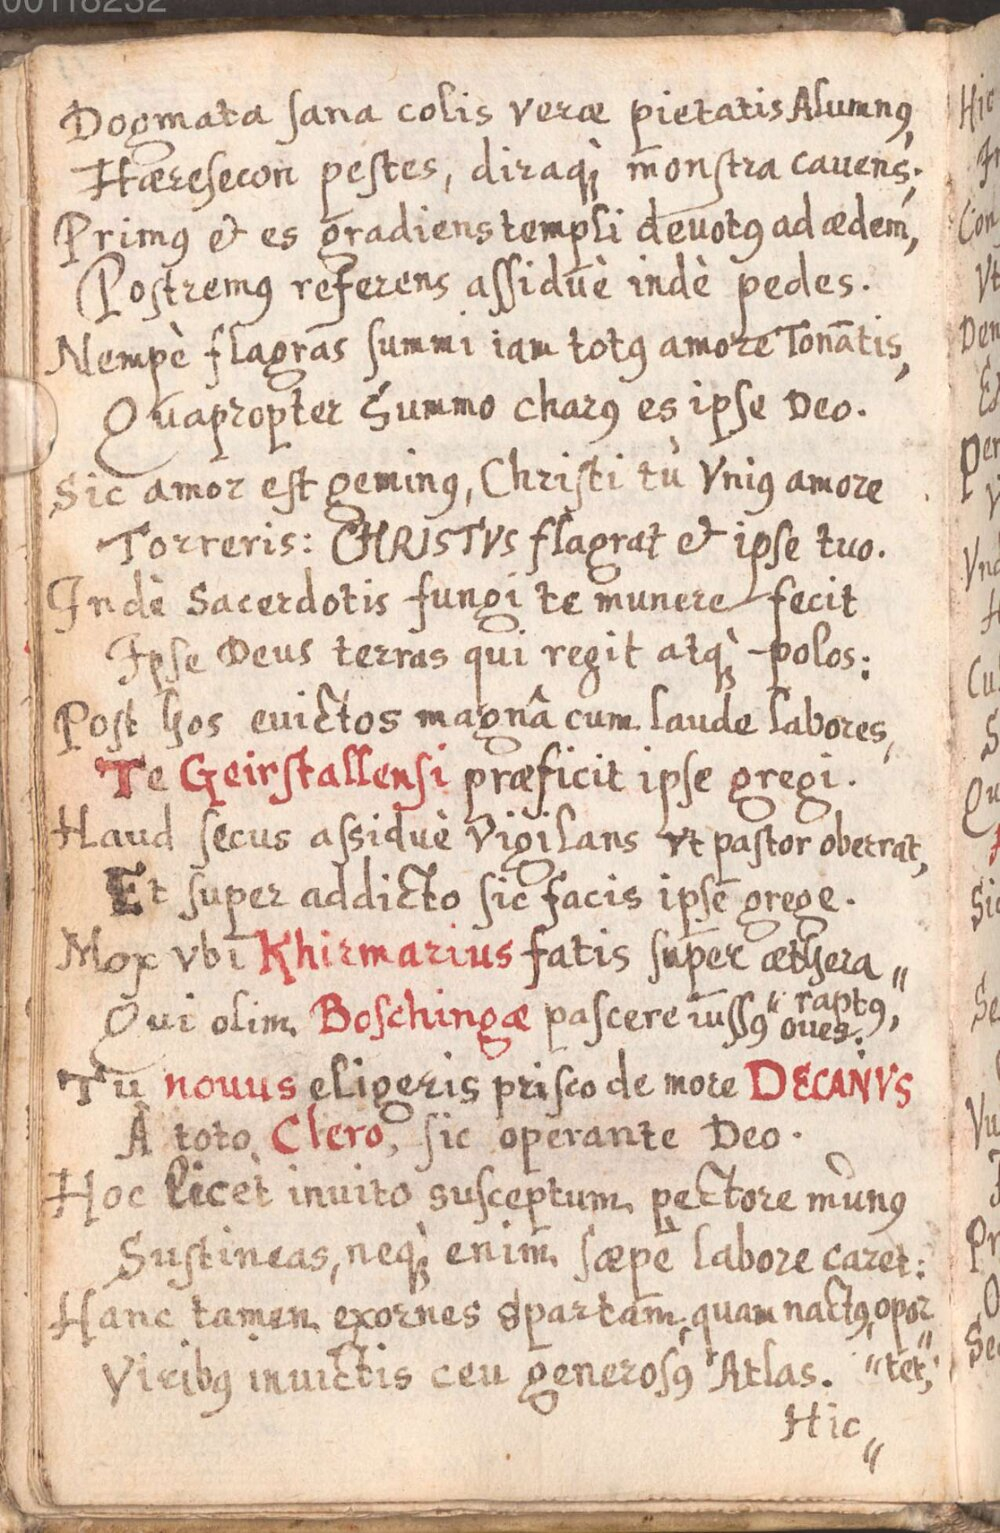 00118232
Dogmata ſana colis veræ pietatis Alumnꝰ,
Hæreſecon peſtes, diraqꝫ̀ monſtra cavens;
Primꝰ & es gradiens templi deuotꝰ ad ædem,
Poſtremꝰ referens aſſiduè indè pedes.
Nempè flagrãs ſummi iam totꝰ amore Tonãtis,
Quapropter Summo charꝰ es ipſe Deo.
Sic amor eſt geminꝰ, Chriſti tù Vniꝰ amore
Torreris: CHRISTVS flagrat & ipſe tuo.
Indè Sacerdotis fungi te munere fecit
Ipſe Deus terras qui regit atqꝫ̀ polos:
Poſt hos euictos magnâ cum laude labores,
Te Geirſtallenſi præficit ipſe gregi.
Haud ſecus aſſiduè Vigilans vt paſtor oberrat,
Et ſuper addicto ſic facis ipſe grege.
Mox vbi Khirmarius fatis ſuper æthera "
Qui olim Boſchingæ paſcere iuſſꝰ " raptꝰ,
oues.
Tu nouus eligeris priſco de more DECANVS
Â toto Clero, ſic operante Deo.
Hoc licèt inuito susceptum pectore mùnꝰ
Suſtineas, neqꝫ̀ enim ſæpè labore caret:
Hanc tamen exornes Spartam, quam nactꝰ, opor
Viribꝰ inuictis ceu generoſꝰ Atlas. "tet,
Hic "